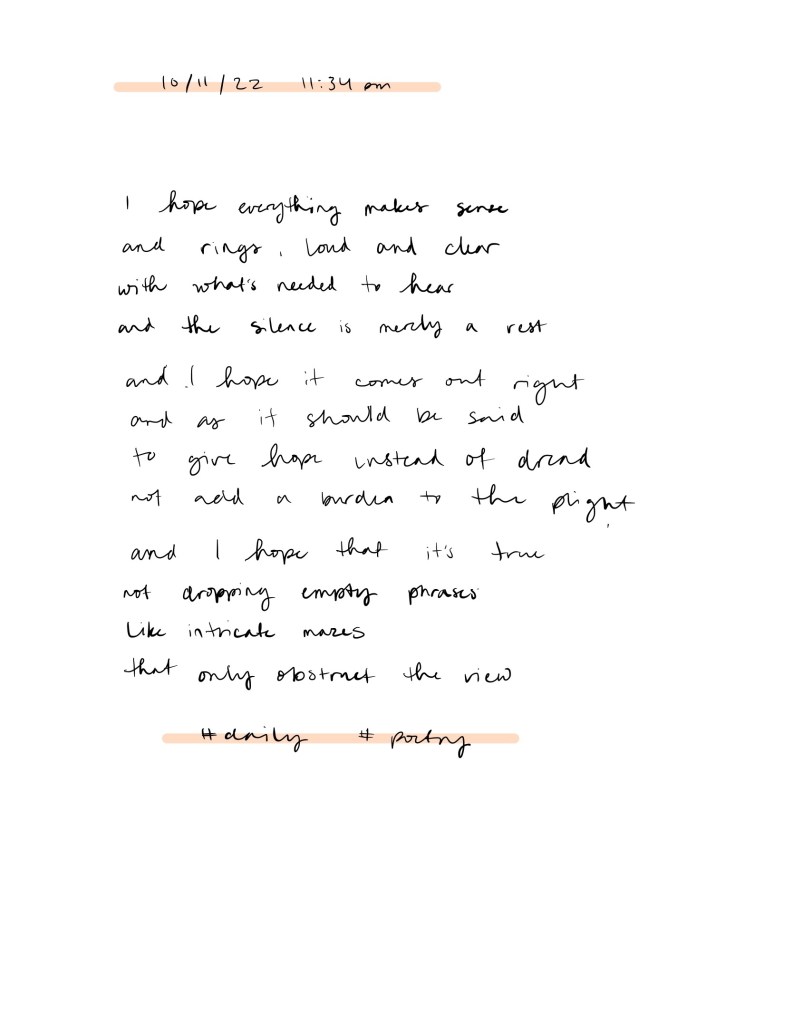 10/11/22 11:34 am
I hope everything makes sense
and rings, loud and clear
with what's needed to hear
and the silence is merely a rest
and I hope it comes out right
and as it should be said
to give hope instead of dread
not add a burden to the plight
and I hope that it's true
not dropping empty phrases
like intricate mazes
that only obstruct the view
#daily # poetry